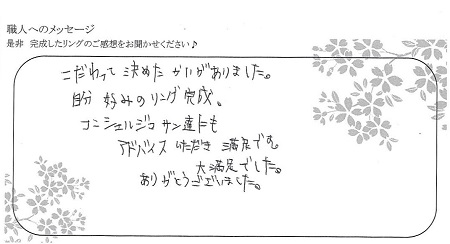 職人へのメッセージ
是非 完成したリングのご感想をお聞かせください♪
こだわって決めたかいがありました。
自分好みのリング完成。
コンシェルジュサン達にも
アドバイスいただき満足です。
大満足でした。
ありがとうございました。